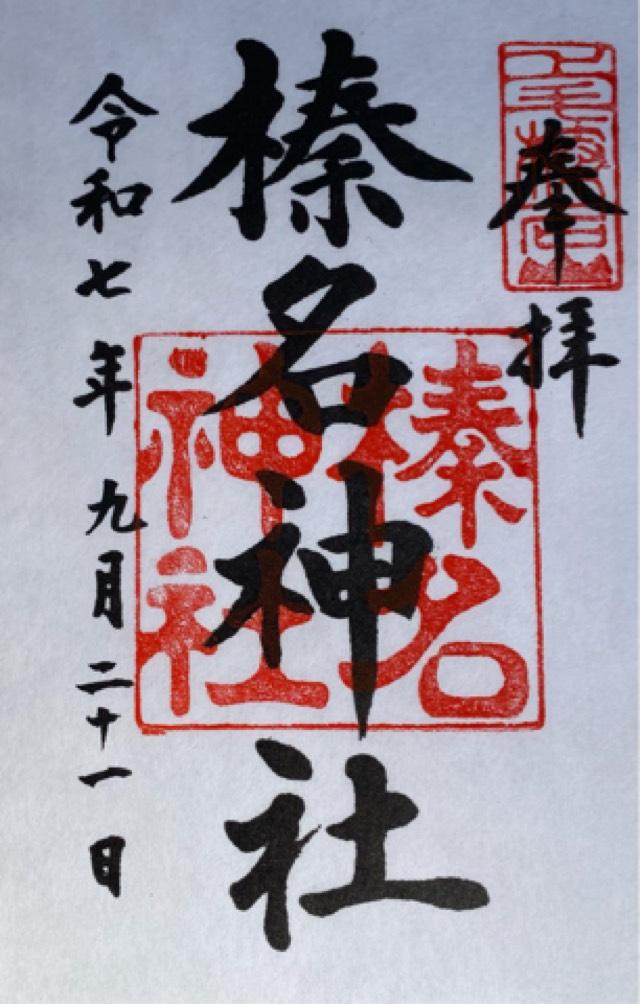 奉拝
榛名神社
榛名
神社
令和七年九月二十一日